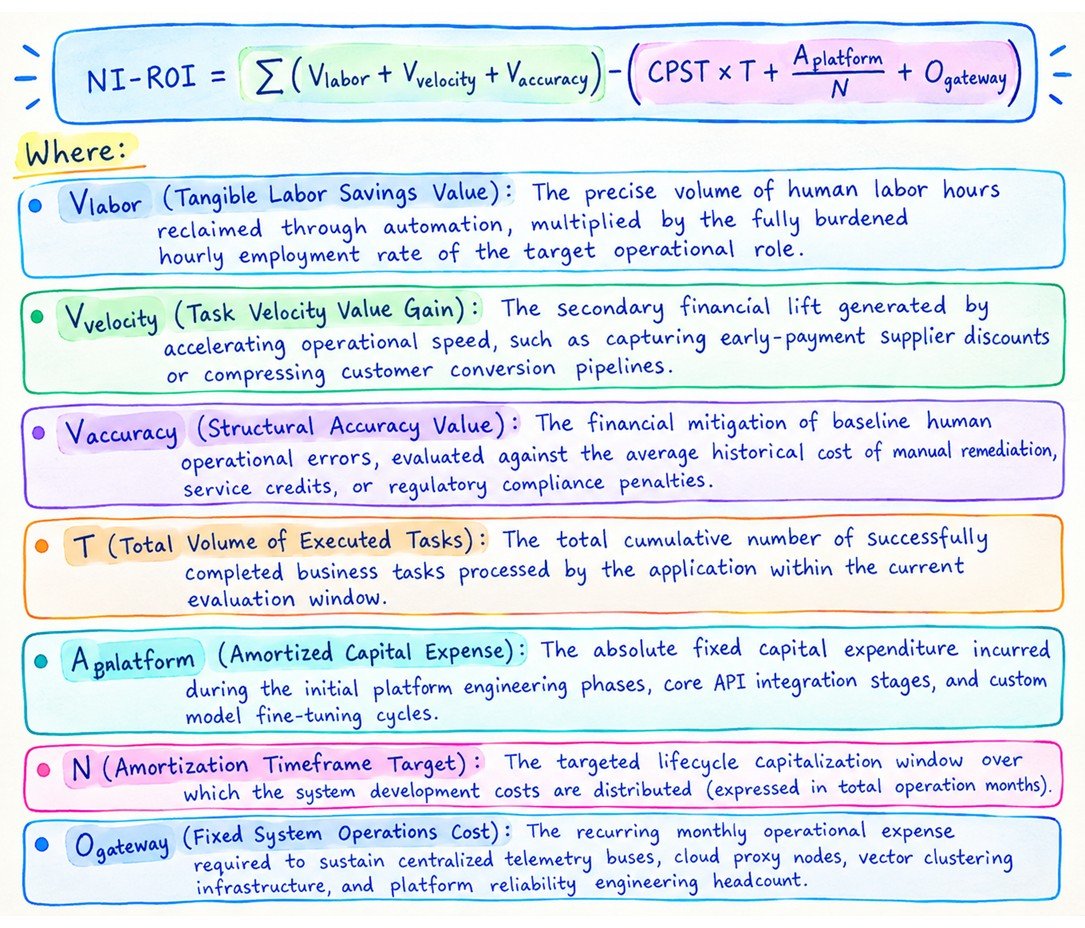 NI-ROI = ∑ (Vlabor + Vvelocity + Vaccuracy) - (CPST × T + Aplatform / N + Ogateway)
Where:
• Vlabor (Tangible Labor Savings Value): The precise volume of human labor hours
reclaimed through automation, multiplied by the fully burdened
hourly employment rate of the target operational role.
• Vvelocity (Task Velocity Value Gain): The secondary financial lift generated by
accelerating operational speed, such as capturing early-payment supplier discounts
or compressing customer conversion pipelines.
• Vaccuracy (Structural Accuracy Value): The financial mitigation of baseline human
operational errors, evaluated against the average historical cost of manual remediation,
service credits, or regulatory compliance penalties.
• T (Total Volume of Executed Tasks): The total cumulative number of successfully
completed business tasks processed by the application within the current
evaluation window.
• (Amortized Capital Expense): The absolute fixed capital expenditure incurred
during the initial platform engineering phases, core API integration stages, and custom
model fine-tuning cycles.
• N (Amortization Timeframe Target): The targeted lifecycle capitalization window over
which the system development costs are distributed (expressed in total operation months).
• Ogateway (Fixed System Operations Cost): The recurring monthly operational expense
required to sustain centralized telemetry buses, cloud proxy nodes, vector clustering
infrastructure, and platform reliability engineering headcount.